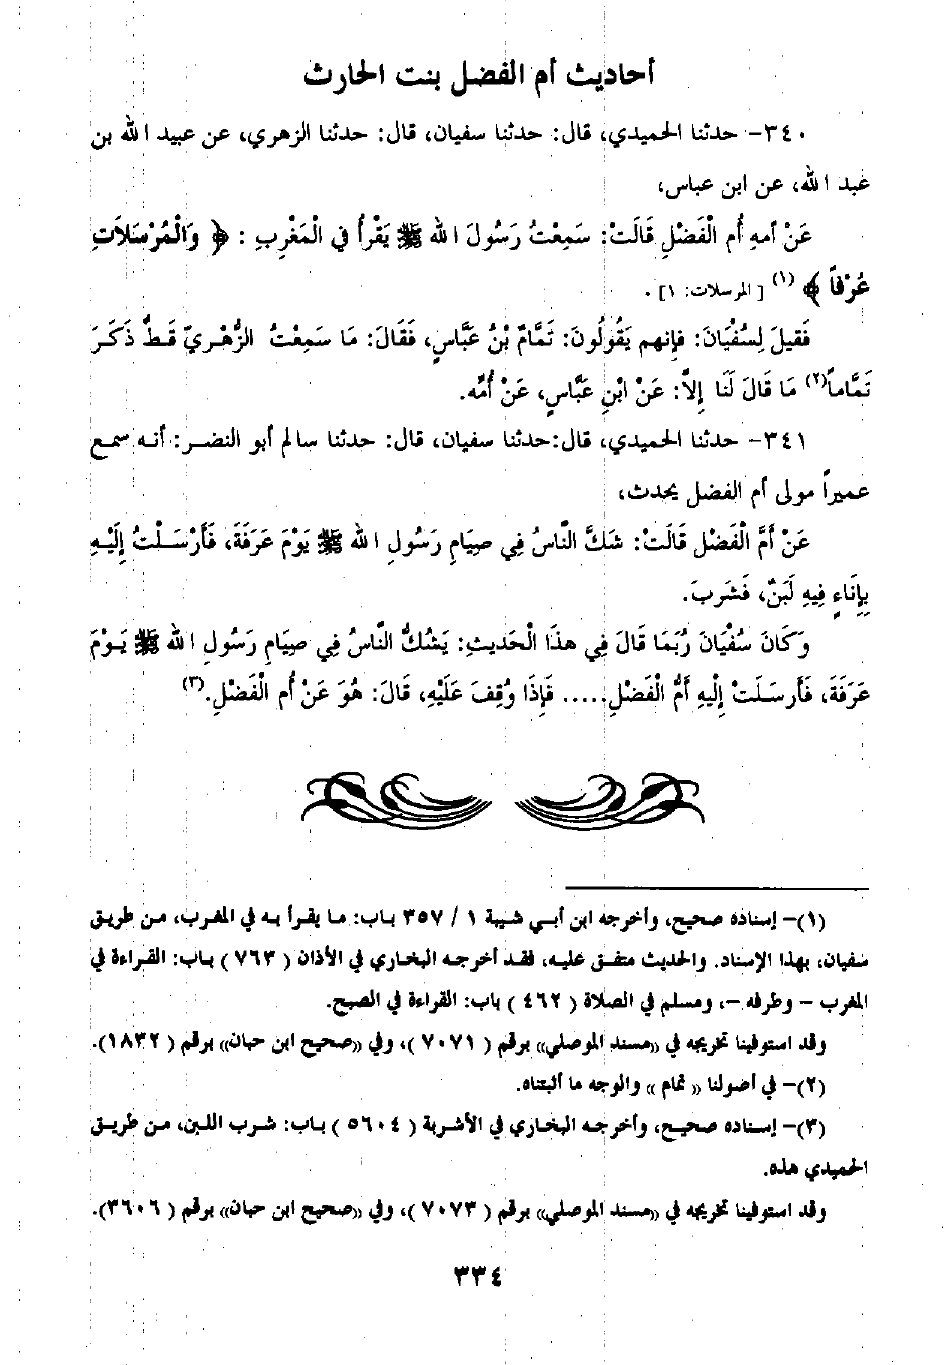 أحاديث أم الفضل بنت الحارث
٣٤٠- حدثنا الحميدي، قال: حدثنا سفيان، قال: حدثنا الزهري، عن عبيد الله بن
عبد الله، عن ابن عباس،
عَنْ أمهِ أُم الْفَضْلِ قَالَتْ: سَمِعْتُ رَسُولَ الله ﷺ يَقْرأُ في الْمَغْرِبِ : ﴿ وَالْمُرْسَلاَتِ
عُرْفاً ﴾ (١) [ المرسلات: ١] .
فَقيلَ لِسُفْيَانَ: فإنهم يَقُولُونَ: تَمَّامُ بْنُ عَبَّاسٍ، فَقَالَ: مَا سَمِعْتُ الزُّهْرِيّ قَطُّ ذَكَرَ
تَمَّاماً(٢) مَا قَالَ لَنَا إلاَّ: عَنْ ابْنِ عَبَّاسٍ، عَنْ أُمِّه.
٣٤١- حدثنا الحميدي، قال:حدثنا سفيان، قال: حدثنا سالم أبو النضر: أنه سمع
عميراً مولى أم الفضل يحدث،
عَنْ أُمَّ الْفَضْل قَالَتْ: شَكَّ النَّاسُ فِي صِيَامِ رَسُولِ الله ﷺ يَوْمَ عَرَفَةَ، فَأَرْسَلْتُ إلَيْهِ
بِإنَاءٍ فِيهِ لَبَنٌ، فَشَربَ.
وَكَانَ سُفْيَانَ رُبَمَا قَالَ فِي هذَا الْحَديثِ: يَشُكُّ النَّاسُ فِي صِيَامِ رَسُولِ الله ﷺ يَوْمَ
عَرَفَةَ، فَأَرسَلَتْ إلَيهِ أمُّ الْفَضْلِ..... فَإذَا وُقِفَ عَلَيْهِ، قَالَ: هُوَ عَنْ أُم الْفَضْلِ.(٣)
(١)- إسناده صحيح، وأخرجه ابن أبي شيبة ١ / ٣٥٧ باب: ما يقرأ به في المغرب، من طريق
سفيان، بهذا الإسناد. والحديث متفق عليه، فقد أخرجه البخاري في الأذان ( ٧٦٣ ) باب: القراءة في
المغرب - وطرفه -، ومسلم في الصلاة ( ٤٦٢ ) باب: القراءة في الصبح.
وقد استوفينا تخريجه في «مسند الموصلي» برقم ( ٧٠٧١ )، وفي «صحيح ابن حبان» برقم ( ١٨٣٢).
(٢)- في أصولنا « تمام » والوجه ما أثبتناه.
(٣)- إسناده صحيح، وأخرجه البخاري في الأشربة ( ٥٦٠٤ ) باب: شرب اللبن، من طريق
الحميدي هذه.
وقد استوفينا تخريجه في «مسند الموصلي» برقم ( ٧٠٧٣ )، وفي «صحيح ابن حبان» برقم ( ٣٦٠٦).
٣٣٤